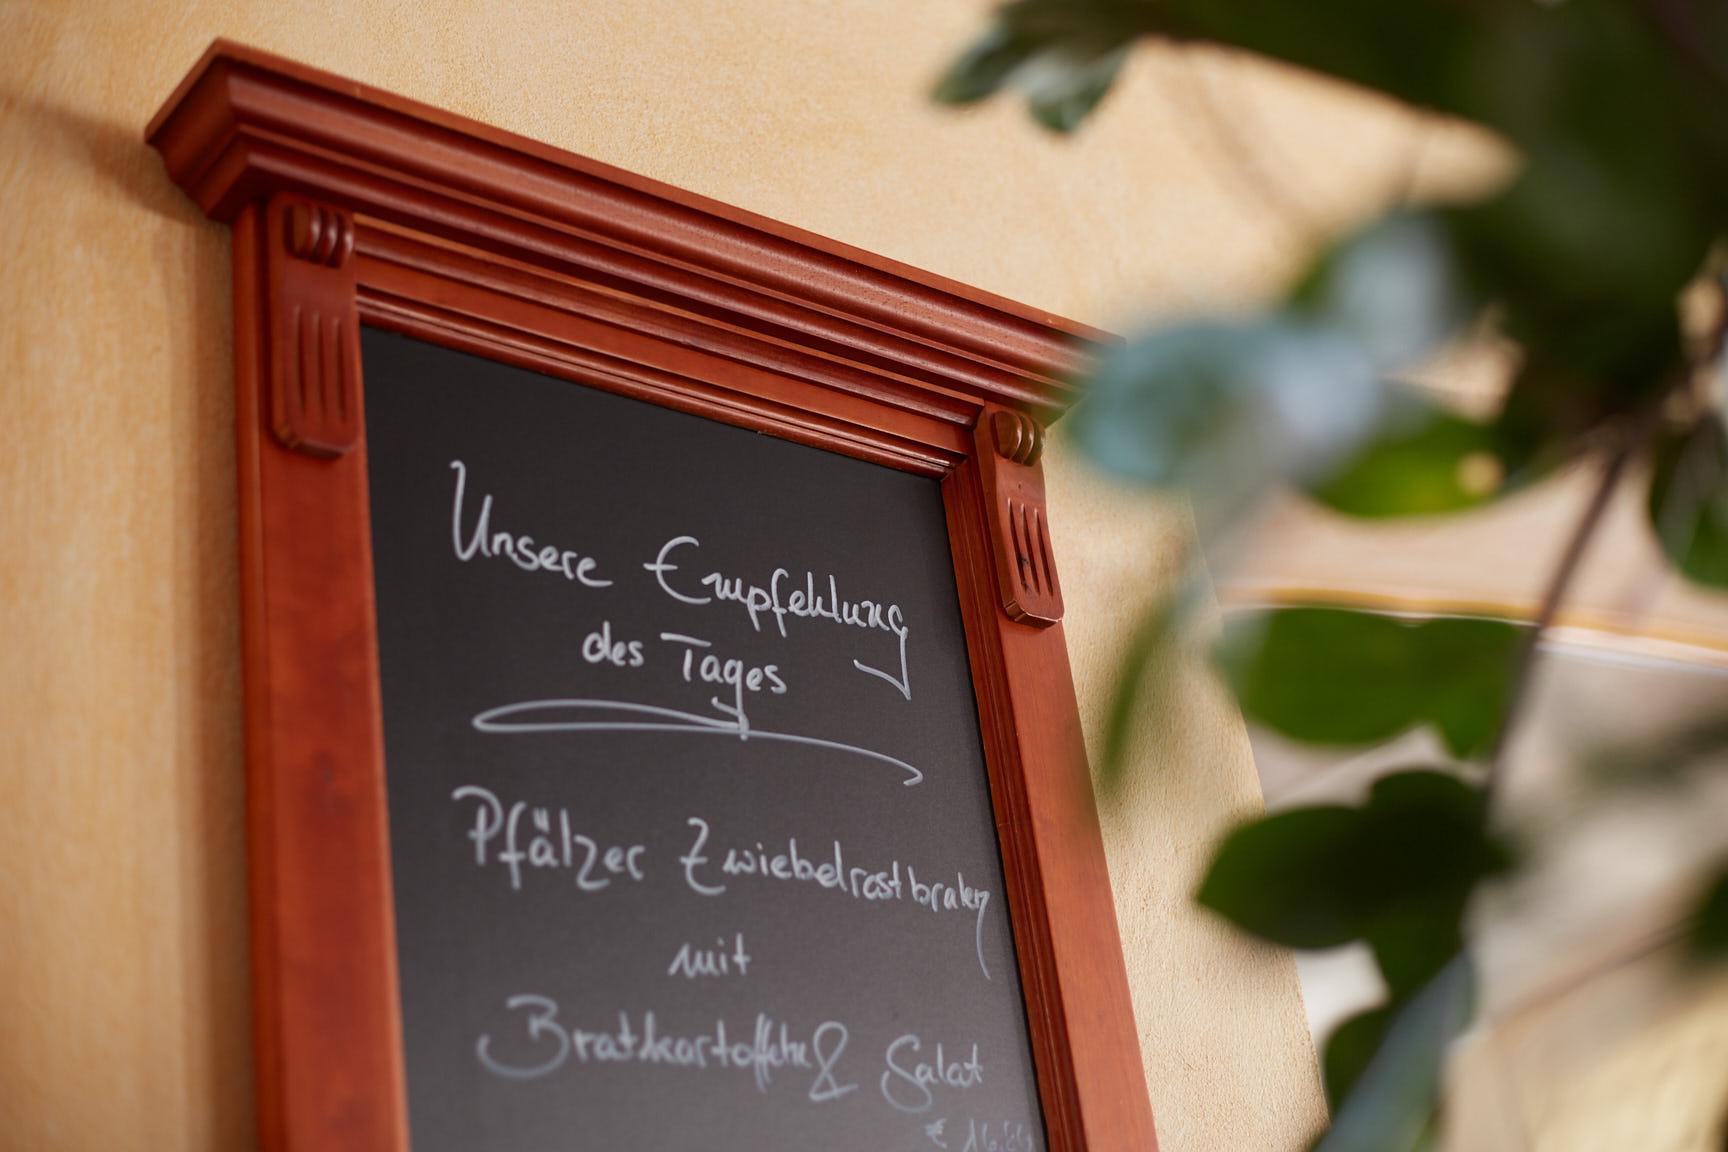 Unsere Empfehlung
des Tages
Pfälzer Zwiebelrostbraten
mit
Bratkartoffeln & Salat
€